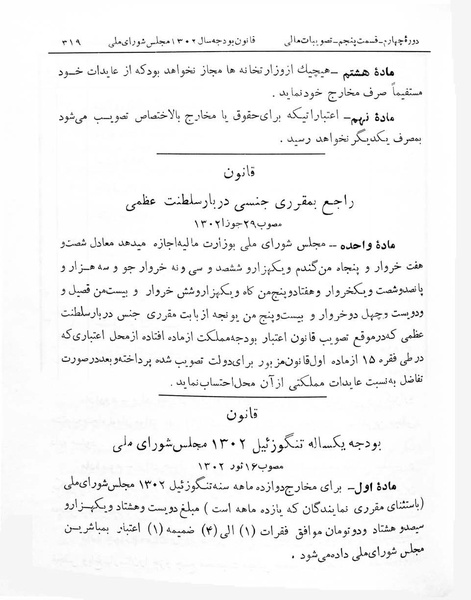 دورهٔ چهارم_قسمت پنجم_تصویبات مالی قانون بودجه سال ۱۳۰۲ مجلس شورای ملی ۳۱۹
مادهٔ هشتم - هیچیك از وزارتخانه ها مجاز نخواهد بود که از عایدات خود
مستقیماً صرف مخارج خود نماید .
مادهٔ نهم - اعتباراتیکه برای حقوق یا مخارج بالاختصاص تصویب می شود
بمصرف یکدیگر نخواهد رسید .
قانون
راجع بمقرری جنسی دربار سلطنت عظمی
مصوب ۲۹ جوزا ۱۳۰۲
مادهٔ واحده - مجلس شورای ملی بوزارت مالیه اجازه میدهد معادل شصت و
هفت خروار و پنجاه من گندم و یکهزار و ششصد و سی و نه خروار جو و سه هزار و
پانصد و شصت و یکخروار و هفتاد و پنج من کاه و یکهزار و شش خروار و بیست من قصیل و
دویست و چهل و دو خروار و بیست و پنج من یونجه از بابت مقرری جنس دربار سلطنت
عظمی که در موقع تصویب قانون اعتبار بودجه مملکت از ماده افتاده از محل اعتباری که
در طی فقره ۱۵ از ماده اول قانون مزبور برای دولت تصویب شده پرداخته و بعد در صورت
تفاضل به نسبت عایدات مملکتی از آن محل احتساب نماید .
قانون
بودجه یکساله تنگوزئیل ۱۳۰۲ مجلس شورای ملی
مصوب ۱۶ ثور ۱۳۰۲
مادهٔ اول - برای مخارج دوازده ماهه سنه تنگوزئیل ۱۳۰۲ مجلس شورای ملی
(باستثنای مقرری نمایندگان که یازده ماهه است ) مبلغ دویست و هشتاد و یکهزار و
سیصد و هشتاد و دو تومان موافق فقرات (۱) الی (۴) ضمیمه (۱) اعتبار بمباشرین
مجلس شورای ملی داده می شود .